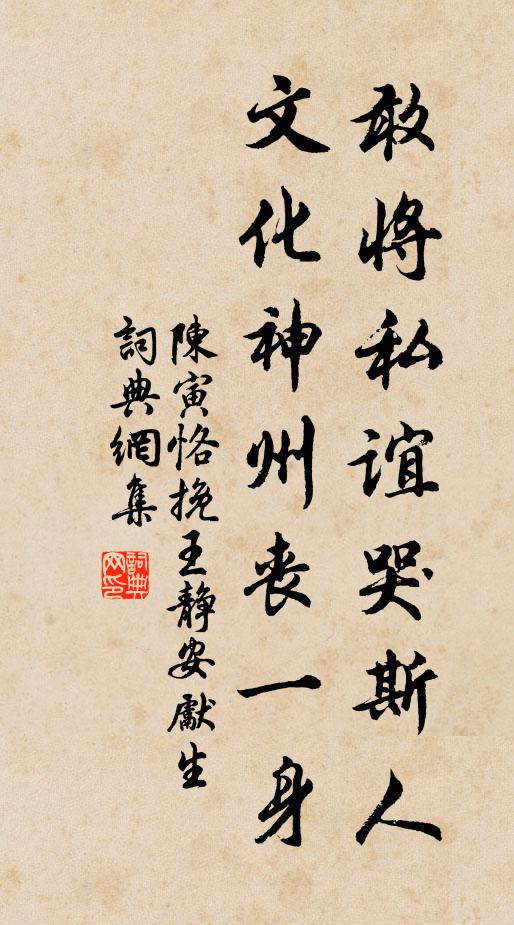 敢將私誼哭斯人
文化神州喪一身
陳寅恪挽王靜安獻生
詞典網集
詞典网印